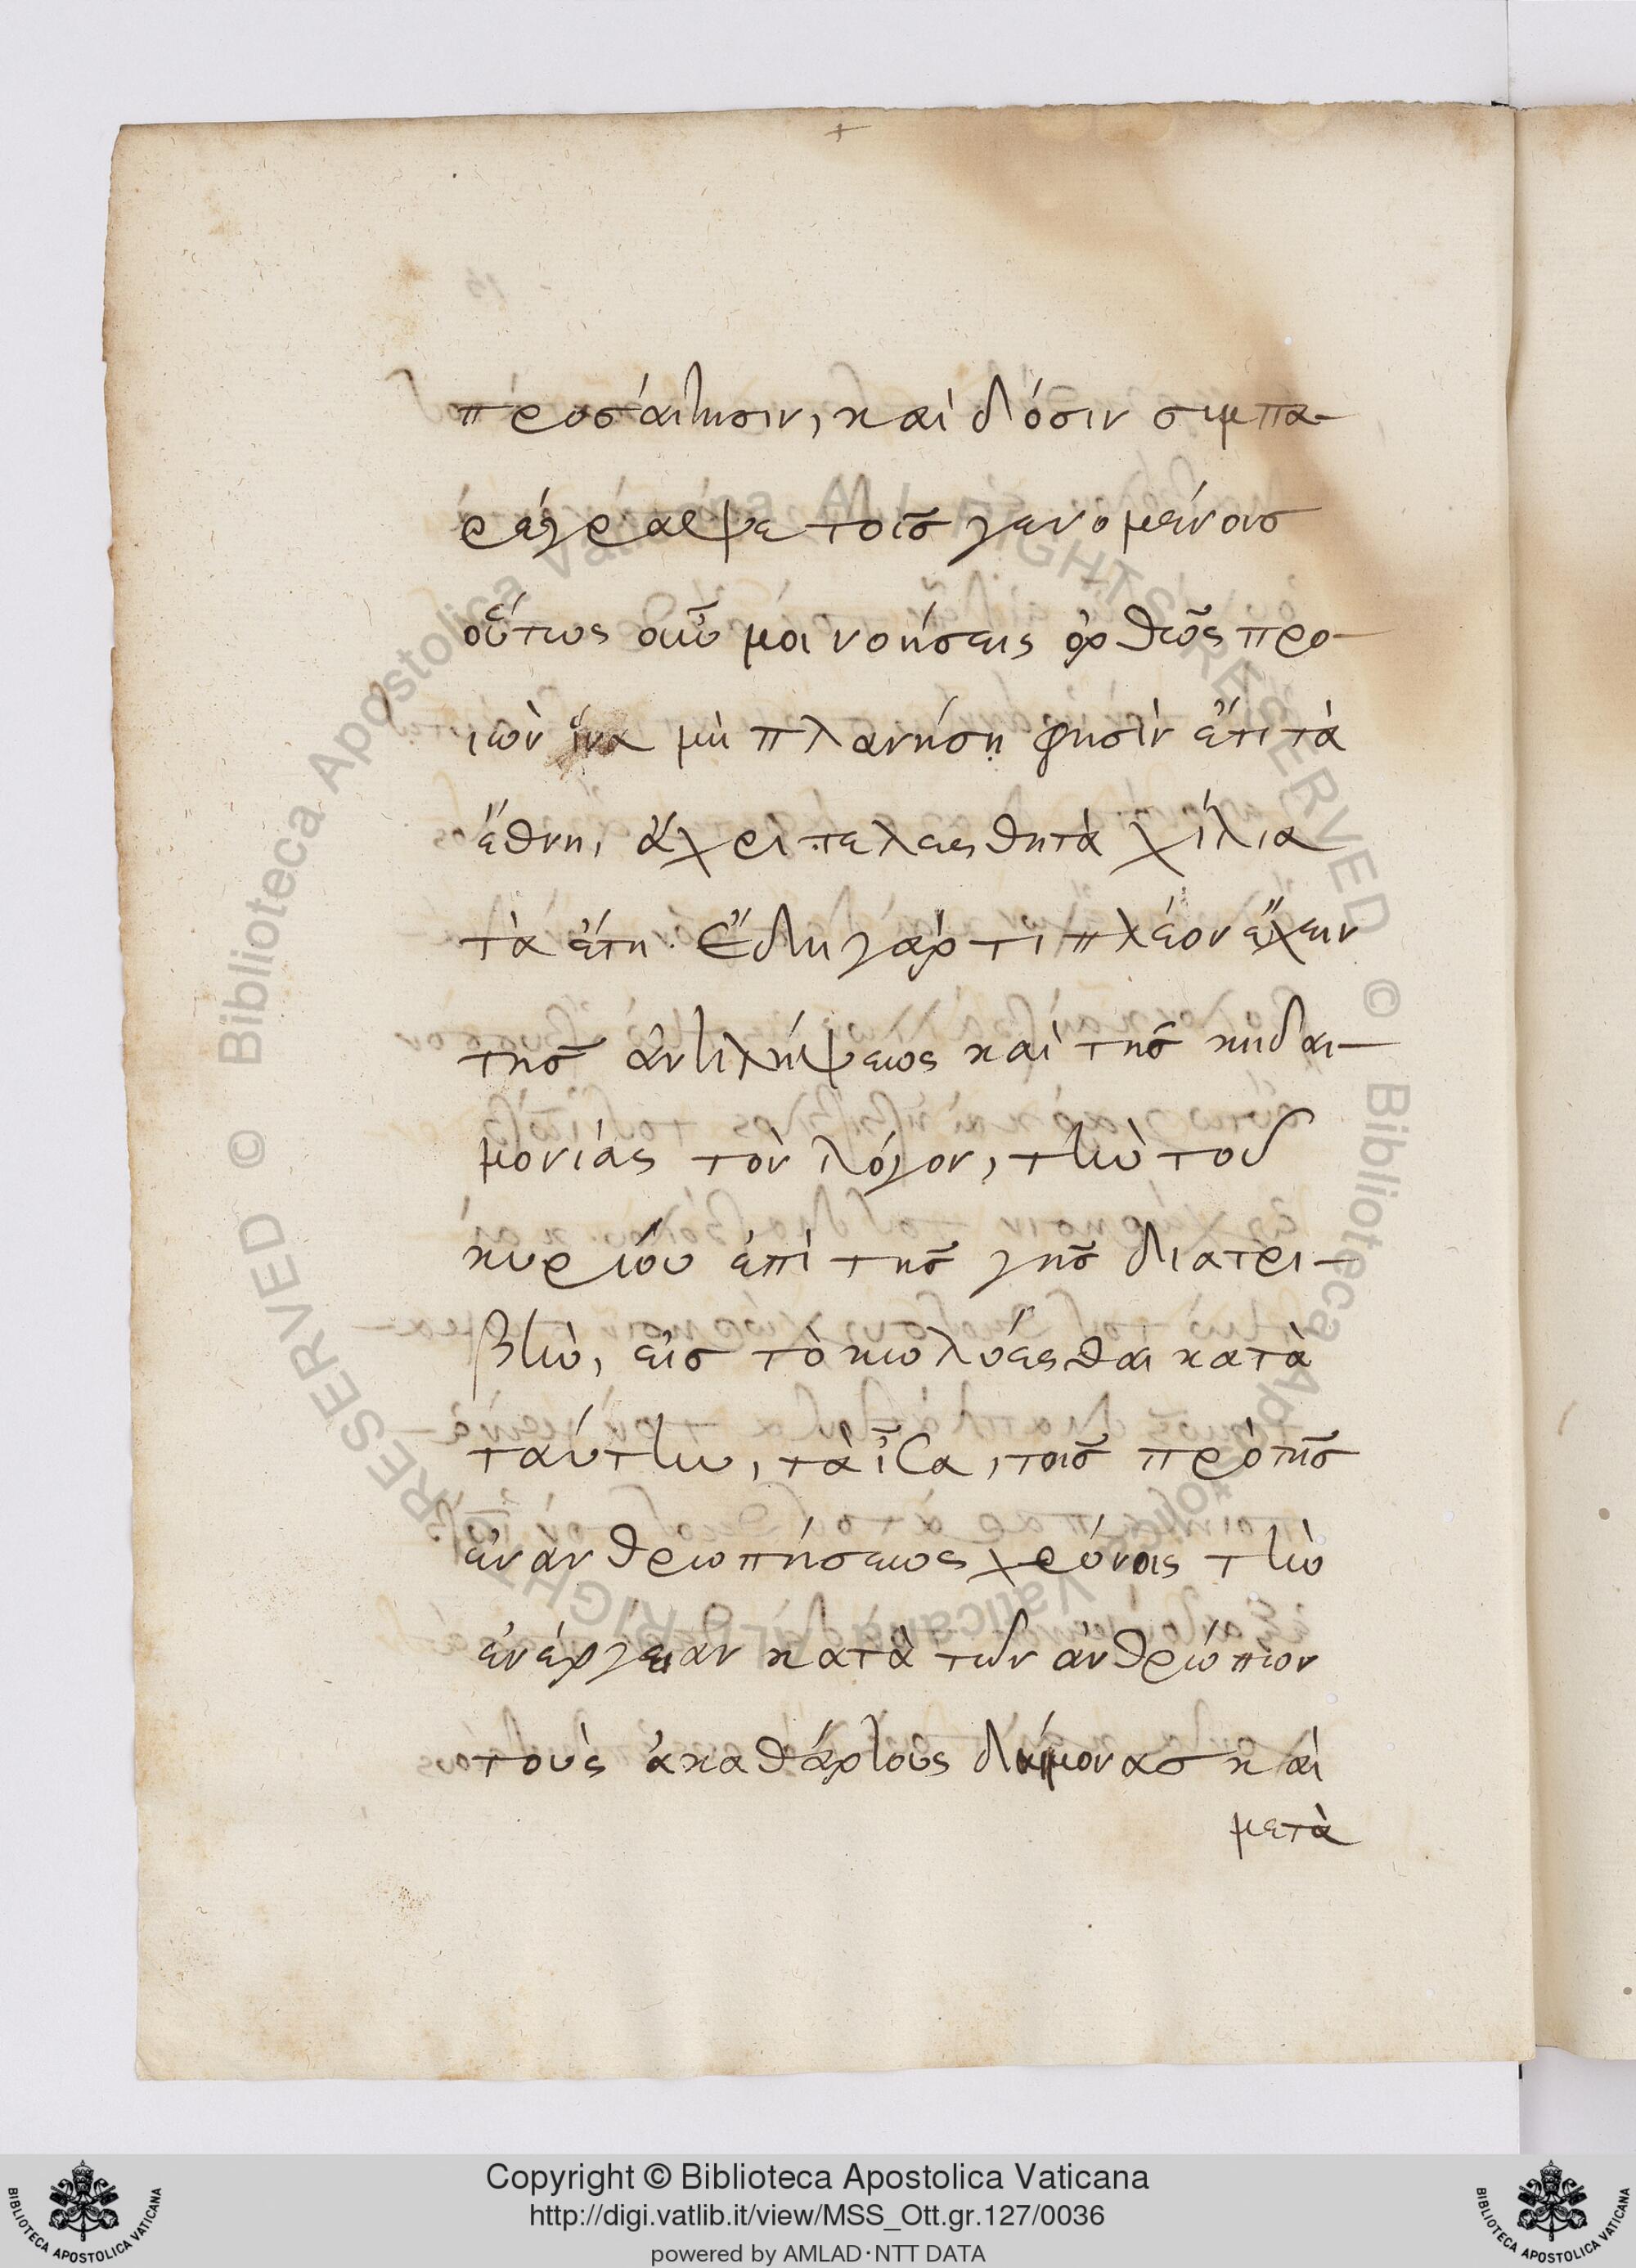 προσαίτησιν, καὶ δόσιν συμπα-
ρέγραψε τοῖς γενομένοις
οὕτως οὖν μοι νοήσεις ὀρθῶς προ-
ιὼν ἵνα μὴ πλανήσῃ φησὶν ἔτι τὰ
ἔθνη, ἄχρι τελεσθῆ τὰ χίλια
τὰ ἔτη. ἔδει γάρ τι πλέον ἔχειν
τῆς ἀντιλήψεως καὶ τῆς κηδαι-
μονίας τὸν λόγον, τὴν τοῦ
κυρίου ἐπὶ τῆς γῆς διατρι-
βὴν, εἰς τὸ κωλύεσθαι κατὰ
ταύτην, τὰ ἶσα, τοῖς πρὸ τῆς
ἐνανθρωπήσεως χρόνοις τὴν
ἐνέργειαν κατὰ τῶν ἀνθρώπων
τοὺς ἀκαθάρτους δαίμονας καὶ
μετὰ
Copyright © Biblioteca Apostolica Vaticana
http://digi.vatlib.it/view/MSS_Ott.gr.127/0036
powered by AMLAD·NTT DATA
BIBLIOTECA APOSTOLICA VATICANA
BIBLIOTECA APOSTOLICA VATICANA